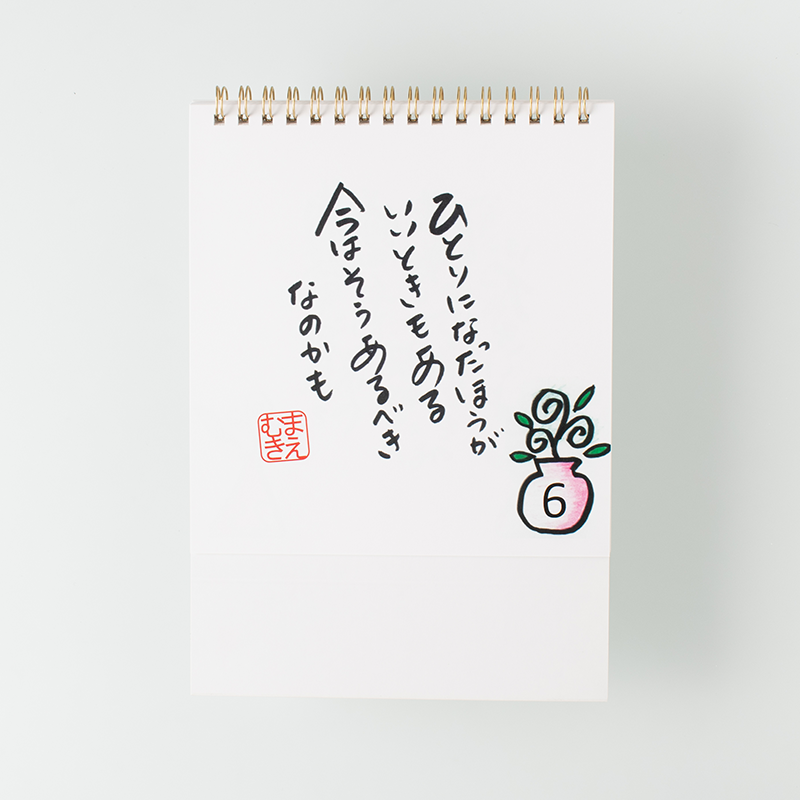 ひとりになったほうが
いいときもある
今はそうあるべき
なのかも
まえ
むき
6